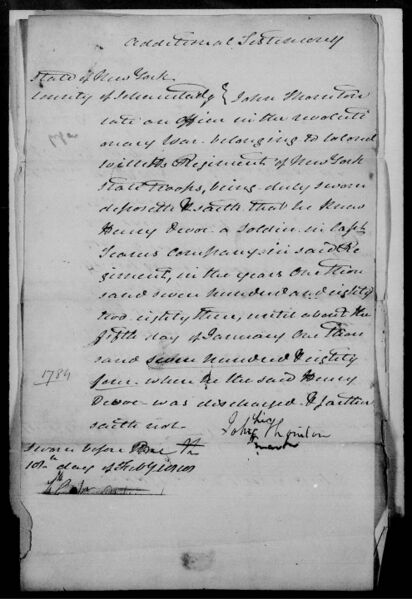 Additional Testimony
State of New York
County of Schenectady } John Thornton
late an officer in the revoluti
onary War belonging to Colonel
Willetts Regiment of New York
State troops, being duly sworn
deposeth & saith that he knew
Henry Devoe a Soldier in Capt
Tearse Company in said Re
giment, in the years One thou
sand seven hundred and eighty
two eighty three, until about the
fifth day of January One thou
sand seven hundred & eighty
1784
four when he the said Henry
Devoe was discharged & farther
saith not.
his
John Thornton
mark
Sworn before me the
10th day of Feby